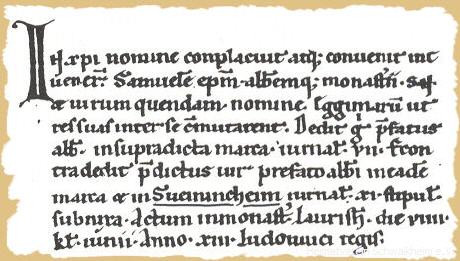 IN xpi nomine conplacuit atq; convenit int
uener̅. Samuele ep̅m abbemq; monast̅ii
& uirum quendam nomine Egginaru̅ ut
res suas inter se c̅mutarent. Dedit g̅ p̅fatus
abb̅. in supradicta marca iurnal̅. vii. & econ
tra dedit p̅dictus uir prefato abbi in eade̅
marca & in Sueinincheim iurnal̅. xi. stipul̅.
subnixa. Actum in monast̅. laurish̅. die viiii
kl̅. iunii. Anno xiii ludouuici regis.